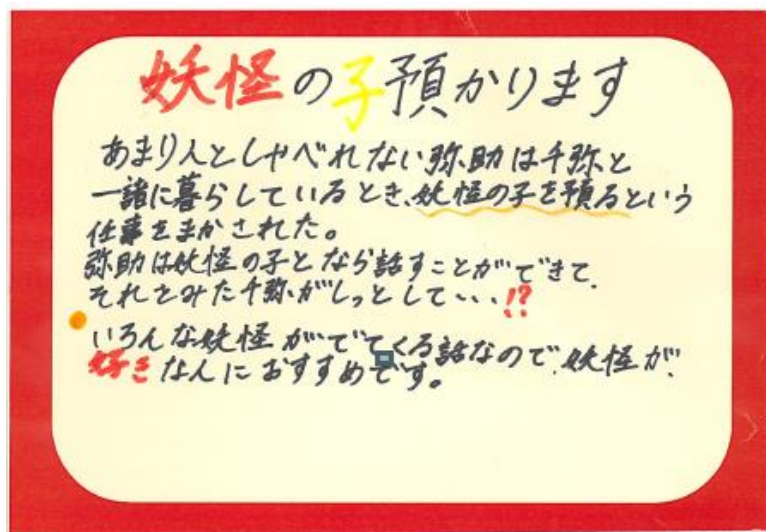 妖怪の子預かります
あまり人としゃべれない弥助は千弥と
一諸に暮らしているとき、妖怪の子を預るという
仕事をまかされた。
弥助は妖怪の子となら話すことができて、
それをみた千弥がしっとして・・・!?
いろんな妖怪がでてくる話なので、妖怪が、
好きなんにおすすめです。